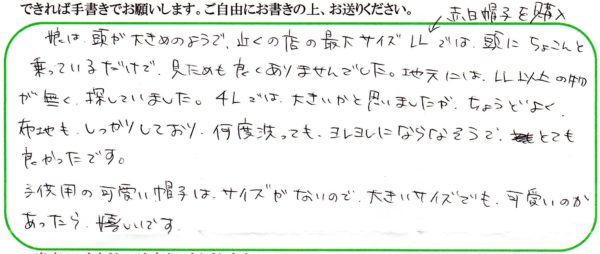 できれば手書きでお願いします。ご自由にお書きの上、お送りください。
赤白帽子を購入
娘は、頭が大きめのようで、近くの店の最大サイズLLでは、頭にちょこんと
乗っているだけで、見ためも良くありませんでした。地元には、LL以上の物
が無く、探していました。4Lでは、大きいかと思いましたが、ちょうどよく、
布地も、しっかりしており、何度洗っても、ヨレヨレにならなそうで、とても
良かったです。
子供用の可愛い帽子は、サイズがないので、大きいサイズでも、可愛いのが
あったら、嬉しいです。